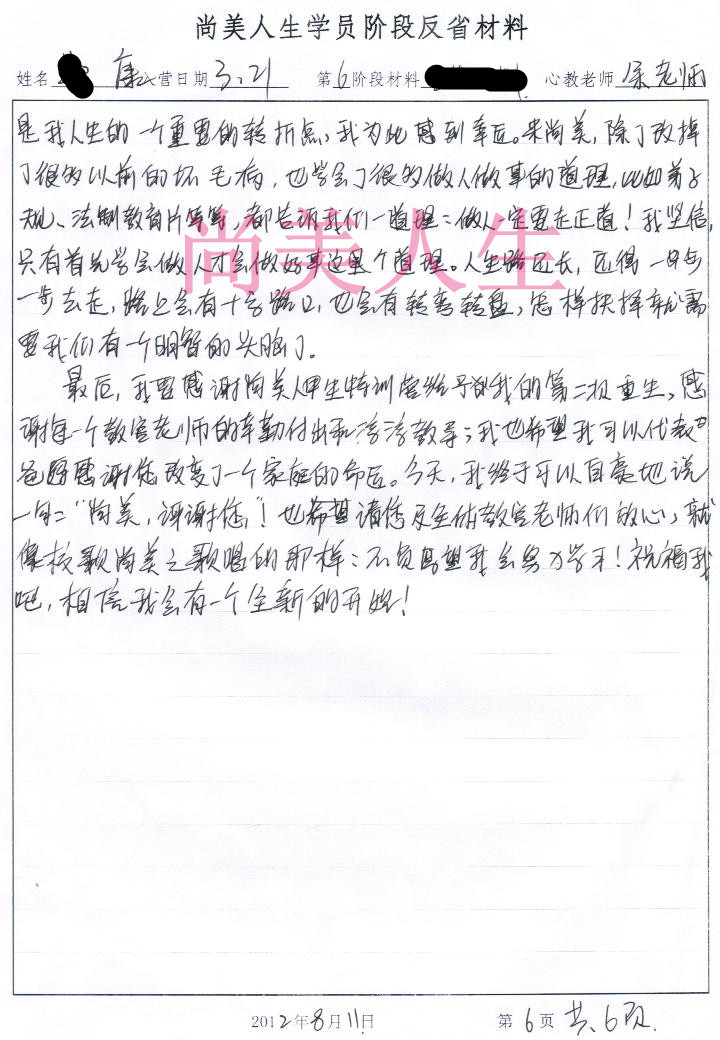 尚美人生学员阶段反省材料
姓名 康 入营日期 3.21 第6阶段材料 心教老师 余老师
是我人生的一个重要的转折点,我为此感到幸运。来尚美,除了改掉
了很多以前的坏毛病,也学会了很多做人做事的道理,比如弟子
规、法制教育片等等,都告诉我们一道理:做人一定要走正道!我坚信,
只有首先学会做人才会做好事这是个道理。人生路还长,还得一步
一步去走,路上会有十字路口,也会有转弯转盘,怎样抉择就需
要我们有一个明智的头脑了。
最后,我要感谢尚美人生特训营给予我的第二次重生,感
谢每一个教官老师的辛勤付出和谆谆教导;我也希望我可以代表
爸妈感谢您改变了一个家庭的命运。今天,我终于可以自豪地说
一句:“尚美,谢谢您”!也希望请您及全体教官老师们放心,就
像校歌尚美之歌唱的那样:不负厚望我会努力学习!祝福我
吧,相信我会有一个全新的开始!
尚美人生
2012年8月11日 第6页 共6页